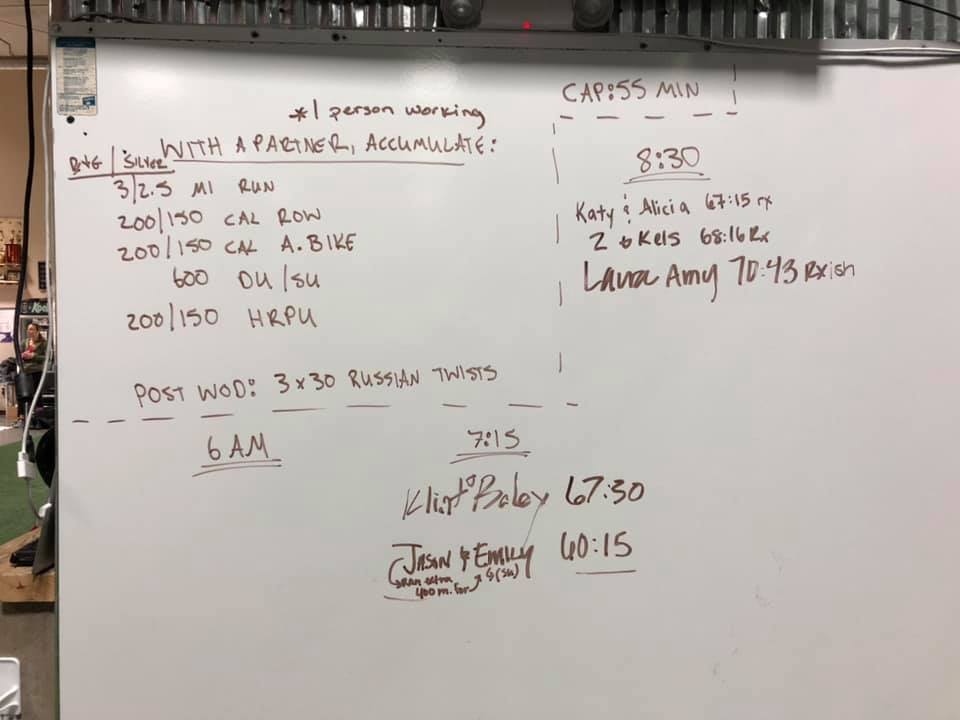 CAP:55 MIN
*1 person working
WITH A PARTNER, ACCUMULATE:
SILVER
3/2.5 MI RUN
200/150 CAL ROW
200/150 CAL A.BIKE
600 DU/SU
200/150 HRPU
POST WOD: 3x30 RUSSIAN TWISTS
8:30
Katy & Alicia 67:15 rx
Kels 68:16 Rx
Laura Amy 70:43 Rxish
6 AM
7:15
67:30
JASON & EMILY 60:15
RAN extra (SU)
400 m. for